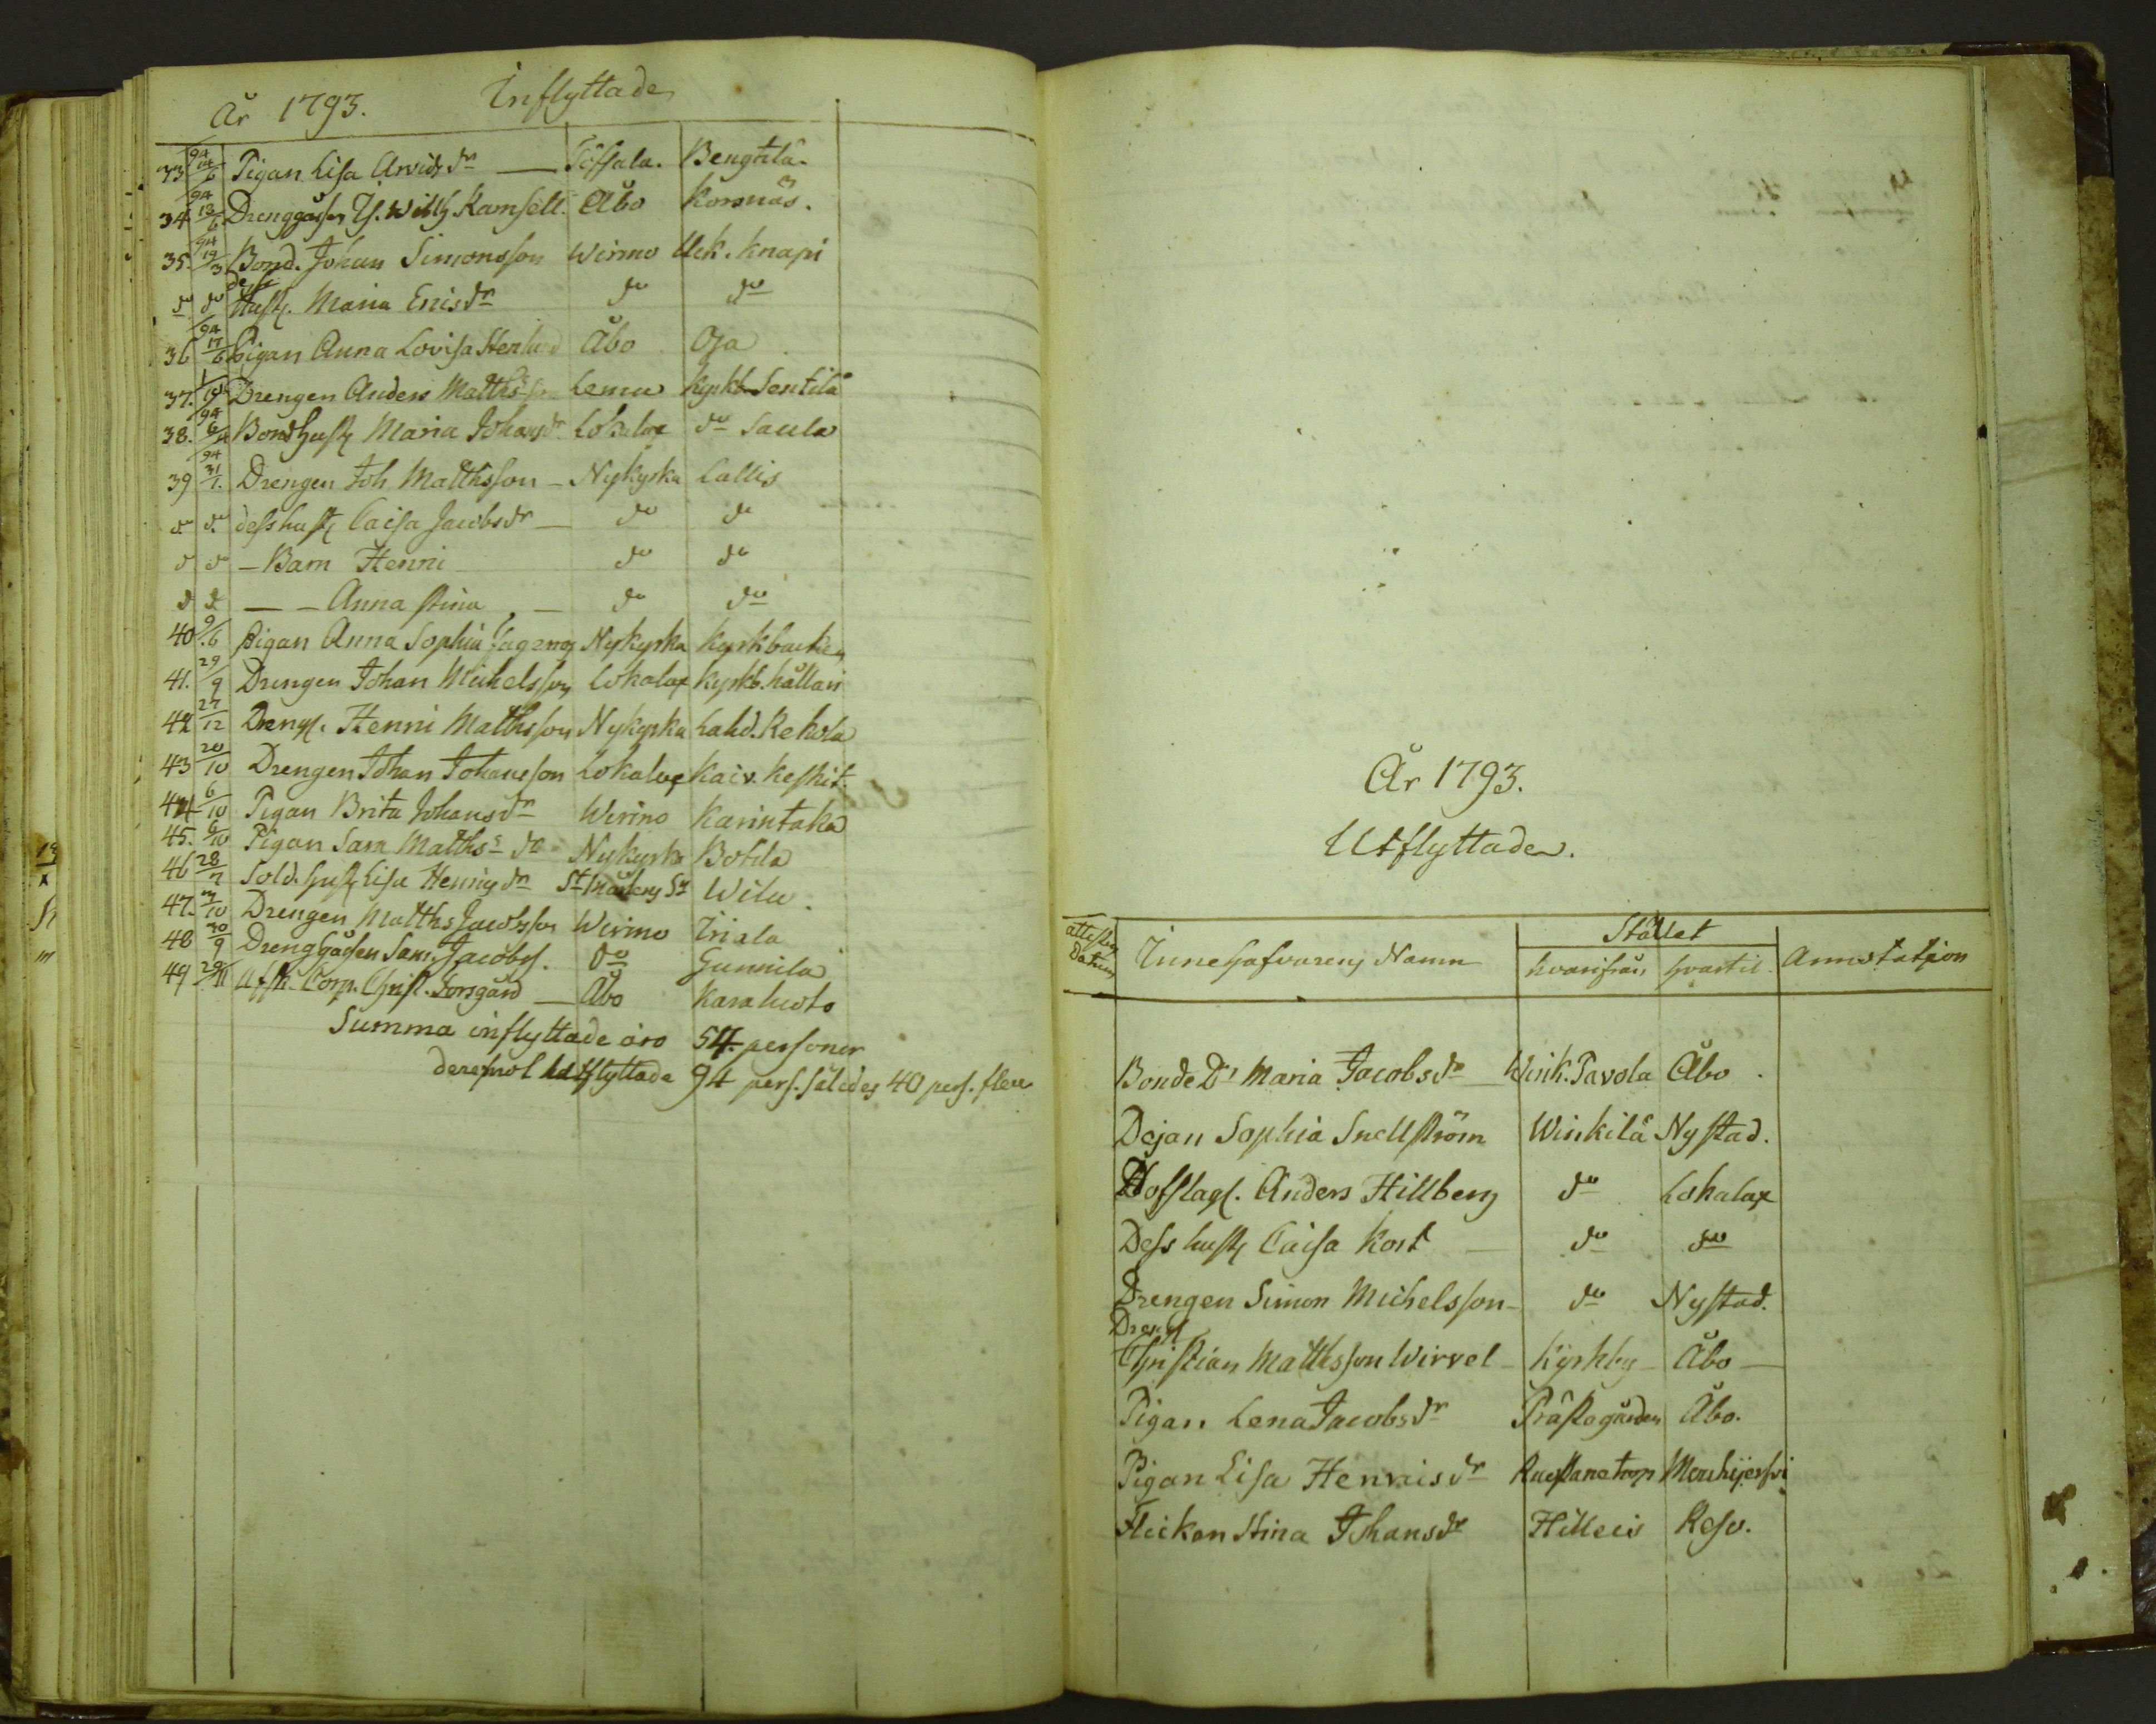 År 1793. Inflyttade
33 94 14/6 Pigan Lisa Arvidsdr — Töfsala. Bengtilä.
34 94 13/6 Drenggåssen Wilh. Ramsell. Åbo Korsnäs.
35. 94 19/3 Bond. Johan Simonsson Wirmo Uck. Knapi
do do dess Hust. Maria Ericsdr do do
36 94 17/6 Pigan Anna Lovisa Åbo Oja
37. Drengen Anders Matths:son Lemu Kyrkb. Sentilä
38. 94 Bondhust. Maria Johansdr Lokalax do Saula
39 94 31/1. Drengen Joh Matthsson — Nykyrka Lallis
do do. dess hust. Caisa Jacobsdr — do do
do do — Barn Henric — do do
do do — — Anna Stina — do do
40 9/6 Pigan Anna Sophia Nykyrka Kyrkbacken
41. 29/9 Drengen Johan Michelsson Lokalax Kyrkb. hållari
42 27/12 Dreng. Henric Mathsson Nykyrka Lahd. Rekola
43 20/10 Drengen Johan Johansson Lokalax Kaiv. Keskit.
44 6/10 Pigan Brita Johansdr Wirmo Karintaka
45. 6/10 Pigan Sara Mathsdr Nykyrka Botila
46 28/7 Sold. hust. Lisa Henricsdr St Mårtens Sn Wilu.
47. /10 Drengen Matths Jacobsson Wirmo Triala
48 30/9 Drenggåssen Sam. Jacobs. do Gunnila
49 29/11 Afsk. Corp. Christ. Forsgård — Åbo Karaluoto
Summa inflyttade äro 54. personer
deremot utflyttade 94 pers. således 40 pers. flere
År 1793.
Utflyttade.
attesten datum Innehafvarens Namn Stället hvarifrån hvartil Annotation
Bonde Dr Maria Jacobsdr Wink. Pavola Åbo.
Dejan Sophia Snellström Winkilä Nystad.
Hofslag. Anders Hillberg do Lokalax
Dess hust. Caisa Kort — do do
Drengen Simon Michelsson — do Nystad.
Dreng
Christian Matthsson Wirvel — Kyrkby — Åbo —
Pigan Lena Jacobsdr Prästegården Åbo.
Pigan Lisa Henricsdr Mouhijerfvi
Flickan Stina Johansdr Hilleis Reso.